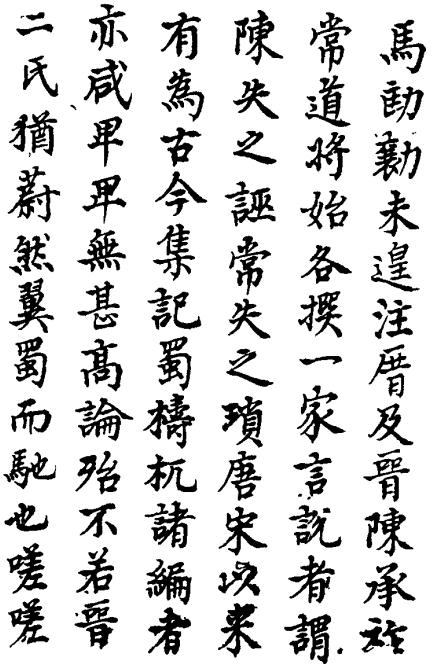 馬劻勷未遑注厝及晉陳承祚
常道將始各撰一家言說者謂
陳失之誣常失之瑣唐宋以來
有為古今集記蜀檮杌諸編者
亦咸卑卑無甚高論殆不若晉
二氏猶蔚然翼蜀而馳也嗟嗟